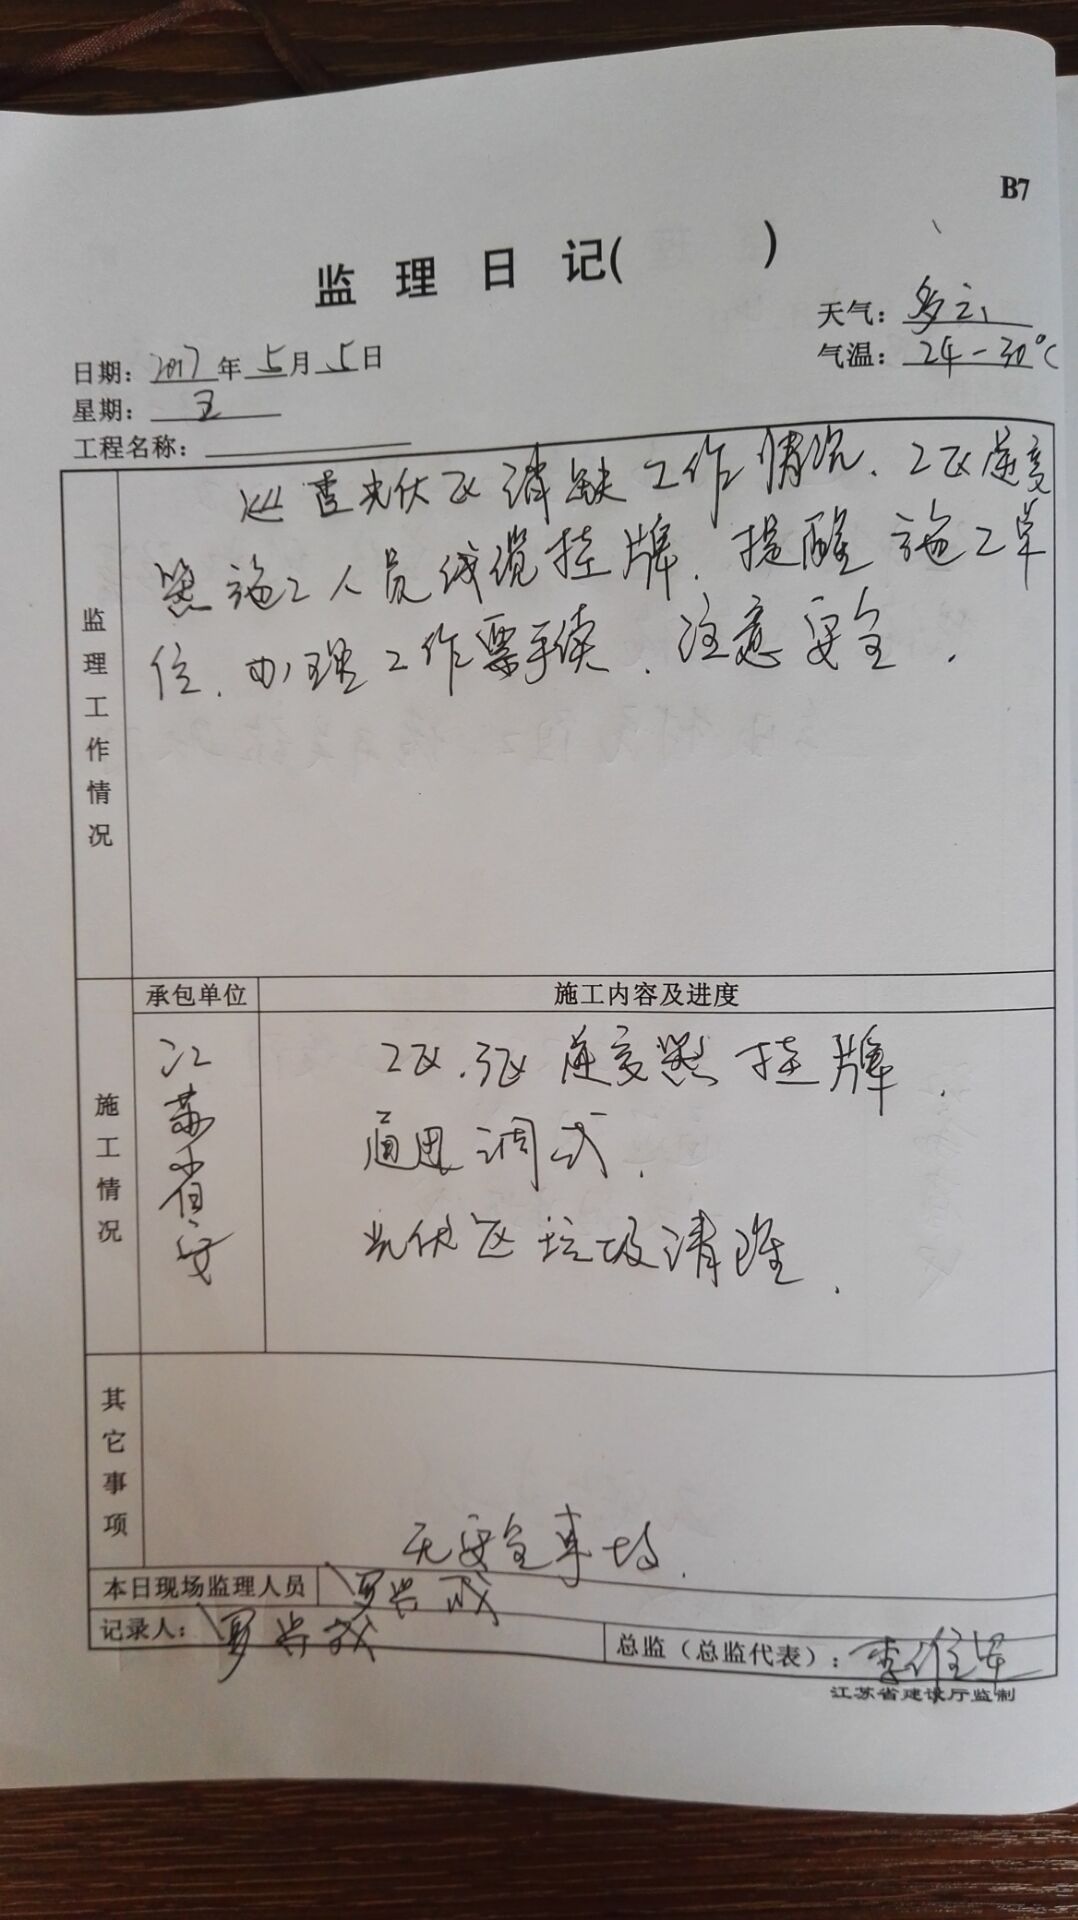 B7
监理日记( )
天气：多云
日期：2017年5月5日
气温：24-30℃
星期：五
工程名称：
监理工作情况
巡查光伏区消缺工作情况、2区逆变
器施工人员线缆挂牌、提醒施工单
位、办理工作票手续、注意安全.
施工情况
承包单位
施工内容及进度
江苏省安
2区、3区逆变器挂牌、
通电调试、
光伏区垃圾清理、
其它事项
无安全事故.
本日现场监理人员 罗兴成
记录人：罗兴成
总监（总监代表）：李
江苏省建设厅监制